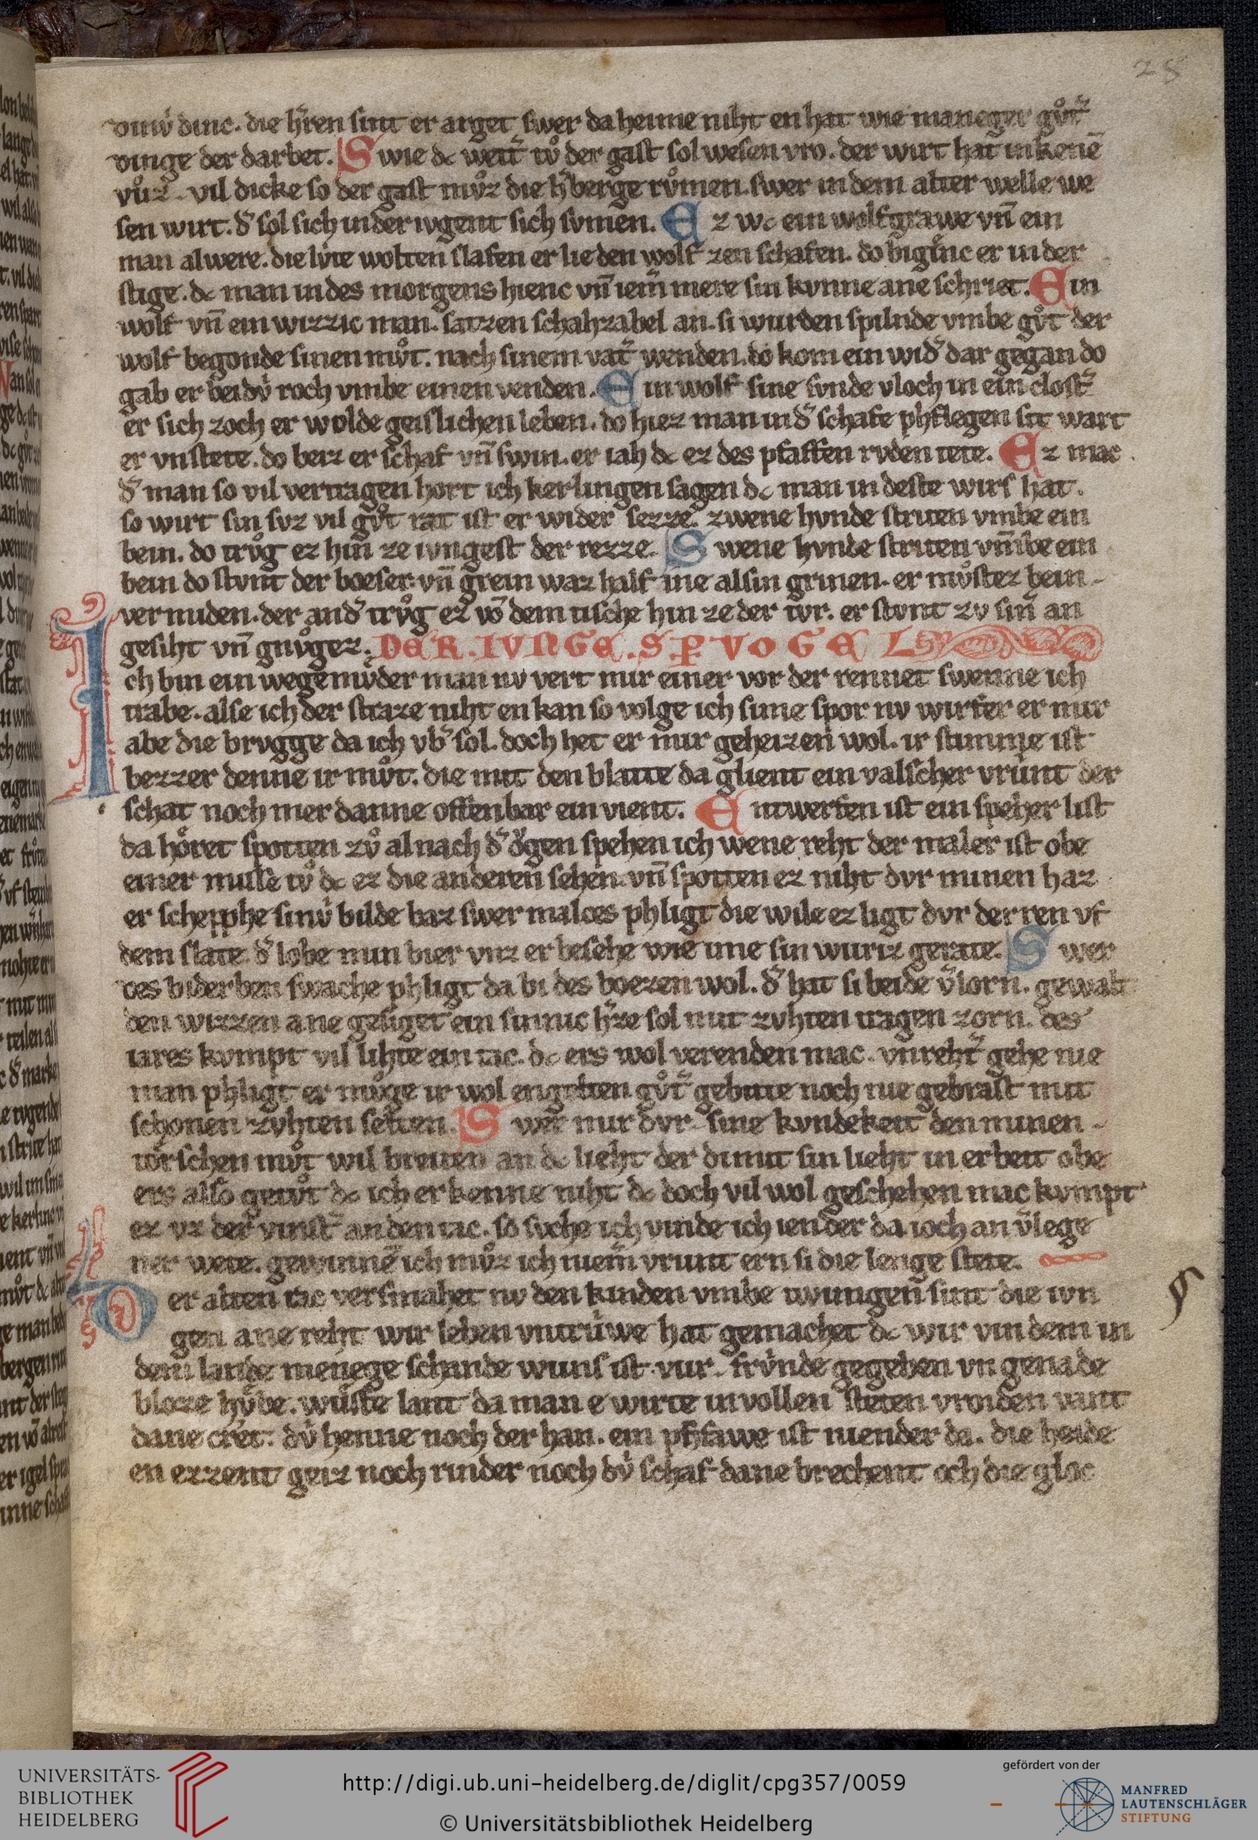 28
dinv dinc. die h̾ren sint er arget swer da heime niht en hat wie maneger gv̊t̾
dinge der darbet. Swie dc weit̾ tv̊ der gast sol wesen vro. der wirt hat in kene̅
vůz. vil dicke so der gast mv̊z die h̾berge rv̊men. swer in dem alter welle we
sen wirt. d̾ sol sich in der ivgent sich svmen. Ez wc ein wolf grawe vn̅ ein
man alwere. die lv̍te wolten slafen er lie den wolf zen schafen. do bigienc er in der
stige. dc man in des morgens hienc vn̅ iem̾ mere sin kvnne ane schriet. Ein
wolf vn̅ ein wizzic man. satzen schahzabel an. si wurden spilnde vmbe gv̊t der
wolf begonde sinen mv̊t. nach sinem vat̾ wenden. do kom ein wid̾ dar gegan do
gab er beidv̍ roch vmbe einen venden. Ein wolf sine svnde vloch in ein clost̾
er sich zoch er wolde geislichen leben. do hiez man in d̾ schafe phflegen sit wart
er vnstete. do beiz er schaf vn̅ swin. er iah dc ez des pfaffen rvden tete. Ez mac
d̾ man so vil vertragen hort ich kerlingen sagen dc man in deste wirs hat.
so wirt sin svz vil gv̊t rat ist er wider sezze. zwene hvnde striten vmbe ein
bein. do trv̊g ez hin ze ivngest der rezze. Swene hvnde striten vmbe ein
bein do stvnt der boeser vn̅ grein waz half ine alsin grinen. er mv̊stez bein
vermiden. der and̾ trv̊g ez vo̅ dem tische hin ze der tvr. er stvnt zv sin̾ an
gesiht vn̅ gnv̊gez. DER. IVNGE. SPVOGEL
Ich bin ein wegemv̊der man nv vert mir einer vor der rennet swenne ich
trabe. alse ich der straze niht en kan so volge ich sime spor nv wirfer er mir
abe die brvgge da ich vb̾ sol. doch het er mir geheizen wol. ir stimme ist
bezzer denne ir mv̊t. die mit den blatte da glient ein valscher vrúnt der
schat noch mer danne offenbar ein vient. Entwerfen ist ein speher list
da hőret spotten zv̊ al nach d̾ ögen spehen ich wene reht der maler ist obe
einer misse tv̊ dc ez die anderen sehen. vn̅ spotten ez niht dvr minen haz
er schepphe sinv̍ bilde baz swer malces phligt die wile ez ligt dvr derren vf
dem slate. d̾ lobe min bier vnz er besehe wie ime sin wurtz gerate. Swer
des biderben swache phligt da bi des boezen wol. d̾ hat si beide v̾lorn. gewalt
den wizzen ane gesiget ein sinnic h̾re sol mit zvhten tragen zorn. des
iares kvmpt vil lihte ein tac. dc ers wol verenden mac. vnreht̾ gehe nie
man phligt er mv̊ge ir wol engelten gv̊t̾ gebitte noch nie gebrast mit
schonen zvhten selten. Swer mir dvr sine kvndekeit den minen
tőrschen mv̊t wil breiten an dc lieht der dimit sin lieht in erbeit obe
ers also getv̊t dc ich erkenne niht dc doch vil wol geschehen mac kvmpt
ez vz der vinst̾ an den tac. so svche ich vinde ich iender da ioch an v̾lege
ner wete. gewinne̅ ich mv̊z ich niem̾ vrunt ern si die lenge stete.
Der alten rac versmahet nv den kinden vmbe twungen sint die ivn
gen ane reht wir leben vntrúwe hat gemachet dc wir vinden in
dem lande menege schande wuns ist vur frv̍nde gegeben vn genade
bloze hv̍be. wůste lant da man e wirte in vollen steten vroiden vant
dane cret. dv̍ henne noch der han. ein phfawe ist niender da. die heide
en ezzent geiz noch rinder noch dv̍ schaf dane brechent och die gloc
UNIVERSITÄTS-
BIBLIOTHEK
HEIDELBERG
http://digi.ub.uni-heidelberg.de/diglit/cpg357/0059
© Universitätsbibliothek Heidelberg
gefördert von der
MANFRED
LAUTENSCHLÄGER
STIFTUNG